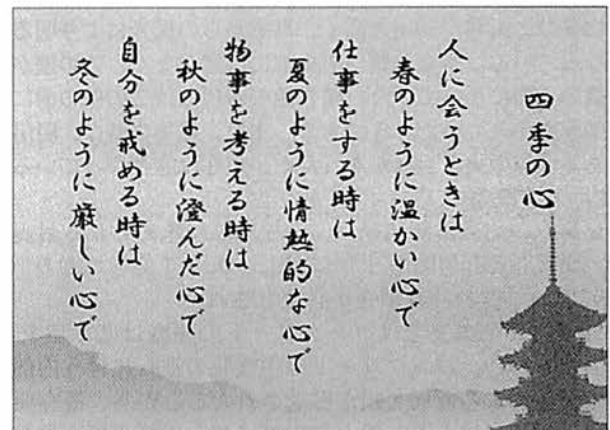 四季の心
人に会うときは
春のように温かい心で
仕事をする時は
夏のように情熱的な心で
物事を考える時は
秋のように澄んだ心で
自分を戒める時は
冬のように厳しい心で